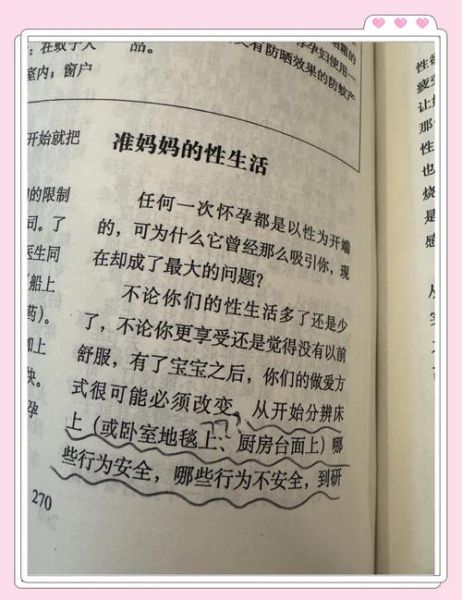 ：在蚊子大
室内；窗户
品。
孕妇使用一
有防晒效果的防蚊产
开始就把
的限制
同。了
医生同
船上
药）。
加上
快。
孕
准妈妈的性生活
任何一次怀孕都是以性为开端
的，可为什么它曾经那么吸引你，现
在却成了最大的问题？
不论你们的性生活多了还是少
了，不论你更享受还是觉得没有以前
舒服，有了宝宝之后，你们的做爱方
式很可能必须改变。从开始分辨床
上（或卧室地毯上、厨房台面上）哪
些行为安全，哪些行为不安全，到研
270
性欲
疲
让
那
性
也
烧
是
感
从